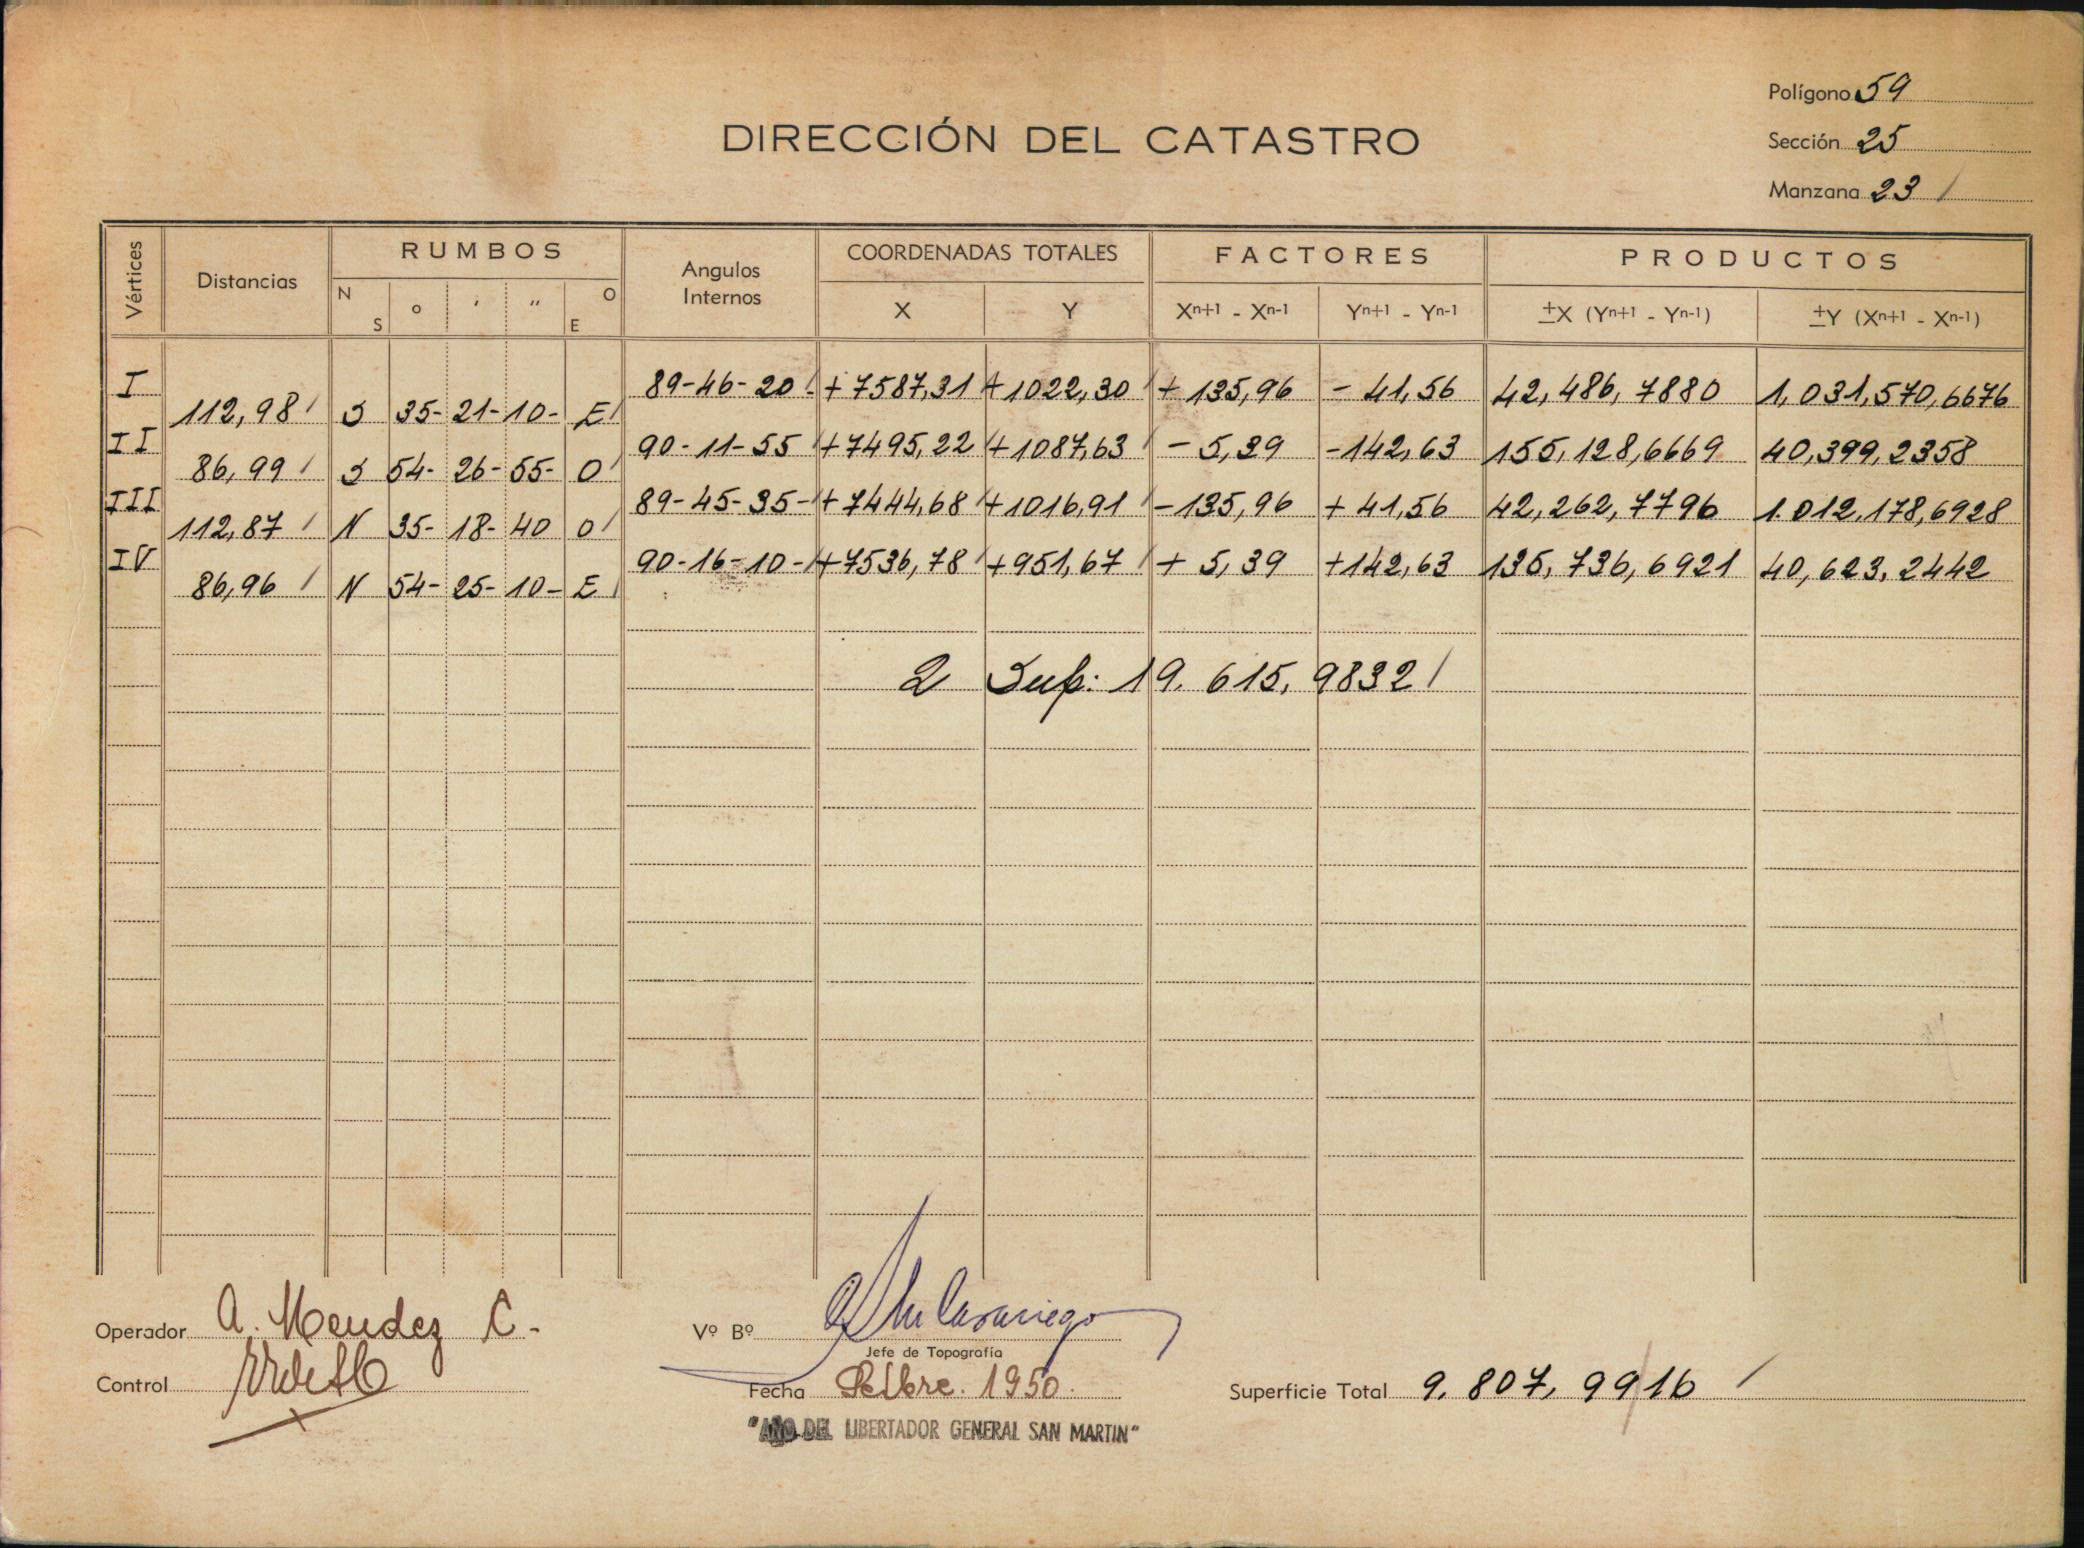 Polígono 59
DIRECCIÓN DEL CATASTRO
Sección 25
Manzana 23 /
Vértices Distancias RUMBOS Angulos Internos COORDENADAS TOTALES FACTORES PRODUCTOS
N S o ' " O E X Y Xn+1 - Xn-1 Yn+1 - Yn-1 ±X (Yn+1 - Yn-1) ±Y (Xn+1 - Xn-1)
I 89-46-20 +7587,31 +1022,30 +135,96 -41,56 42,486,7880 1,031,570,6676
112,98 S 35-21-10- E
II 90-11-55 +7495,22 +1087,63 -5,39 -142,63 155,128,6669 40,399,2358
86,99 S 54-26-55- O
III 89-45-35- +7444,68 +1016,91 -135,96 +41,56 42,262,7796 1.012.178,6928
112,87 N 35-18-40 O
IV 90-16-10- +7536,78 +951,67 +5,39 +142,63 135,736,6921 40,623,2442
86,96 N 54-25-10- E
2 Sup: 19.615,9832 /
Operador A. Mendez C.-
Vº Bº
Jefe de Topografía
Control
Fecha Setbre. 1950.
Superficie Total 9.807,9916 /
"AÑO DEL LIBERTADOR GENERAL SAN MARTIN"